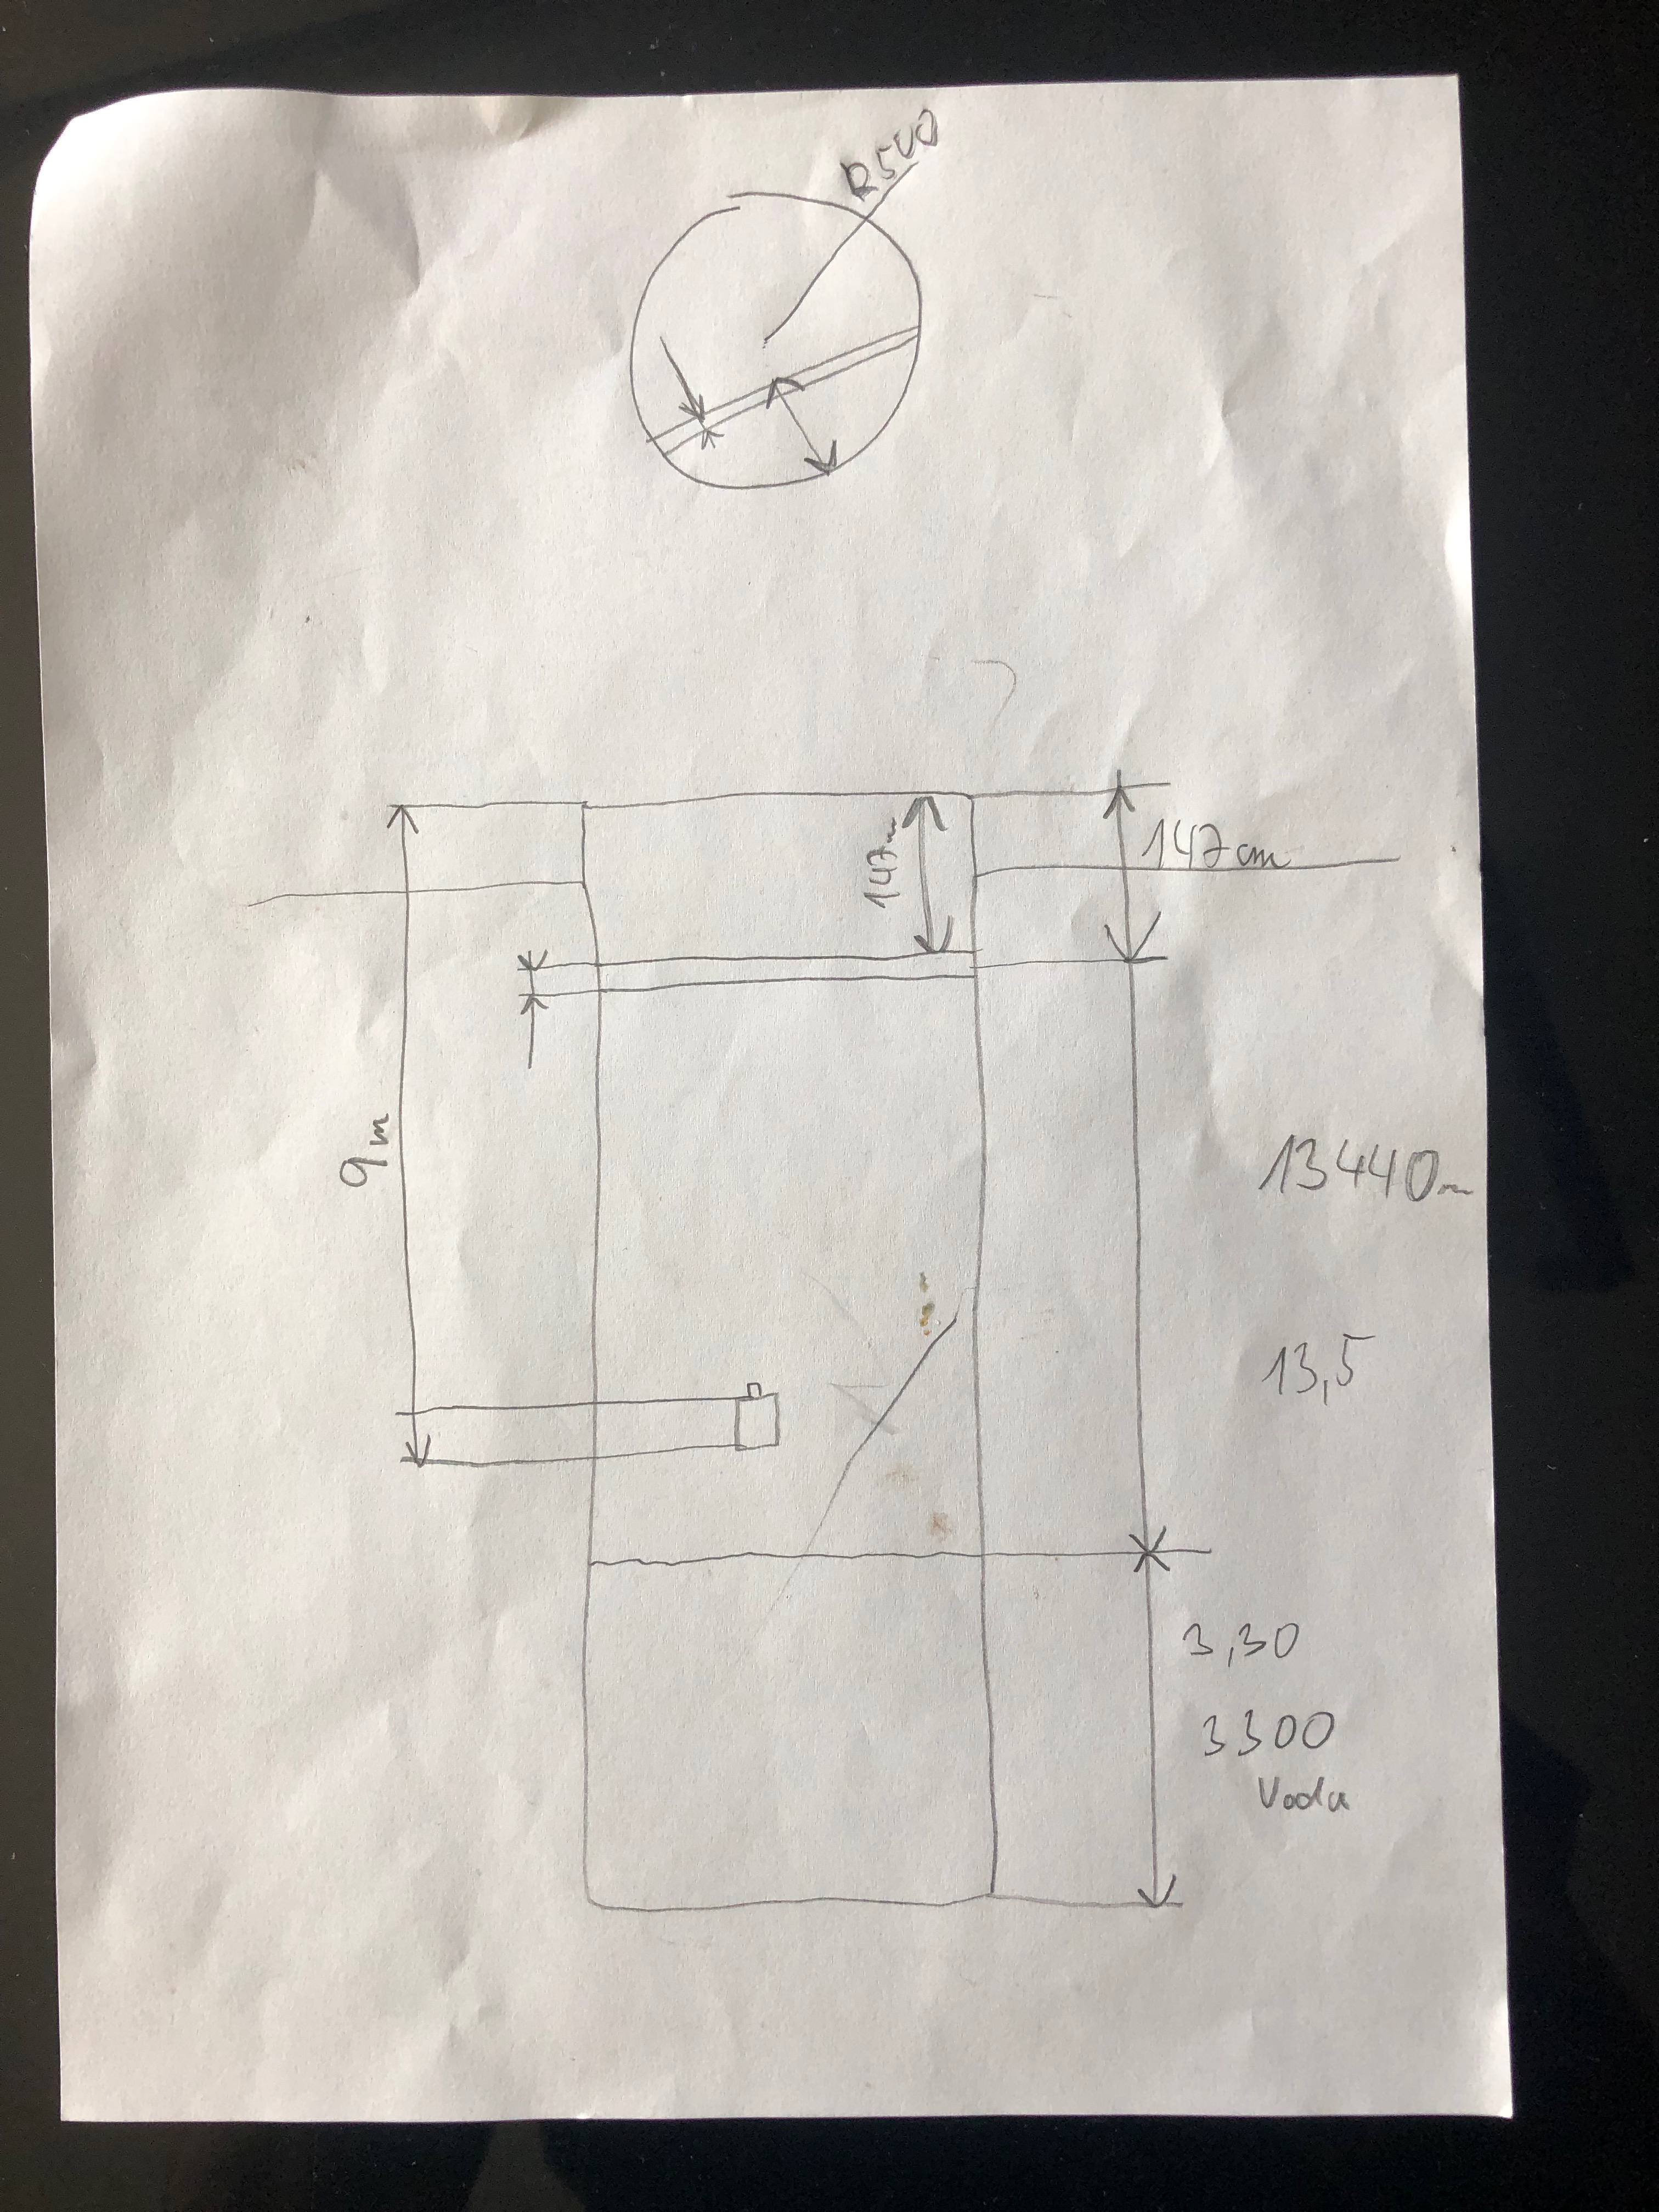 R500
147cm
147cm
9m
13440m
13,5
3,30
3300
Voda